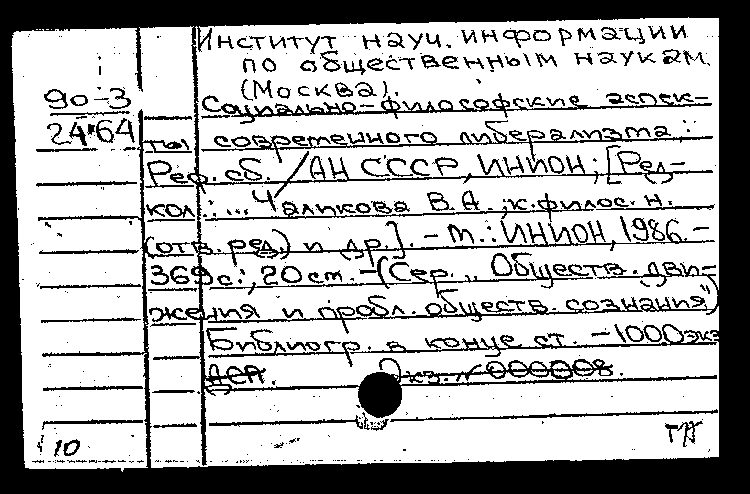 Институт науч. информации
по общественным наукам.
(Москва).
90-3
24764
Социально-философские аспек-
ты современного либерализма:
Реф. сб. / АН СССР, ИНИОН; [Ред-
кол.: ... Чаликова В.А., к. филос. н.
(отв. ред.) и др.]. - М.: ИНИОН, 1986. -
369 с.; 20 см. - (Сер. „Обществ. дви-
жения и пробл. обществ. сознания")
Библиогр. в конце ст. - 1000 экз
ДСП. Экз. № 000008.
10